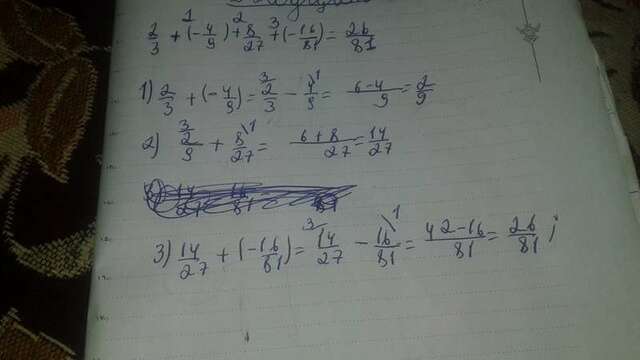 2/3 + (-4/9) + 8/27 + (-16/81) = 26/81
1) 2/3 + (-4/9) = 2/3 - 4/9 = 6-4/9 = 2/9
2) 2/9 + 8/27 = 6+8/27 = 14/27
3) 14/27 + (-16/81) = 14/27 - 16/81 = 42-16/81 = 26/81;